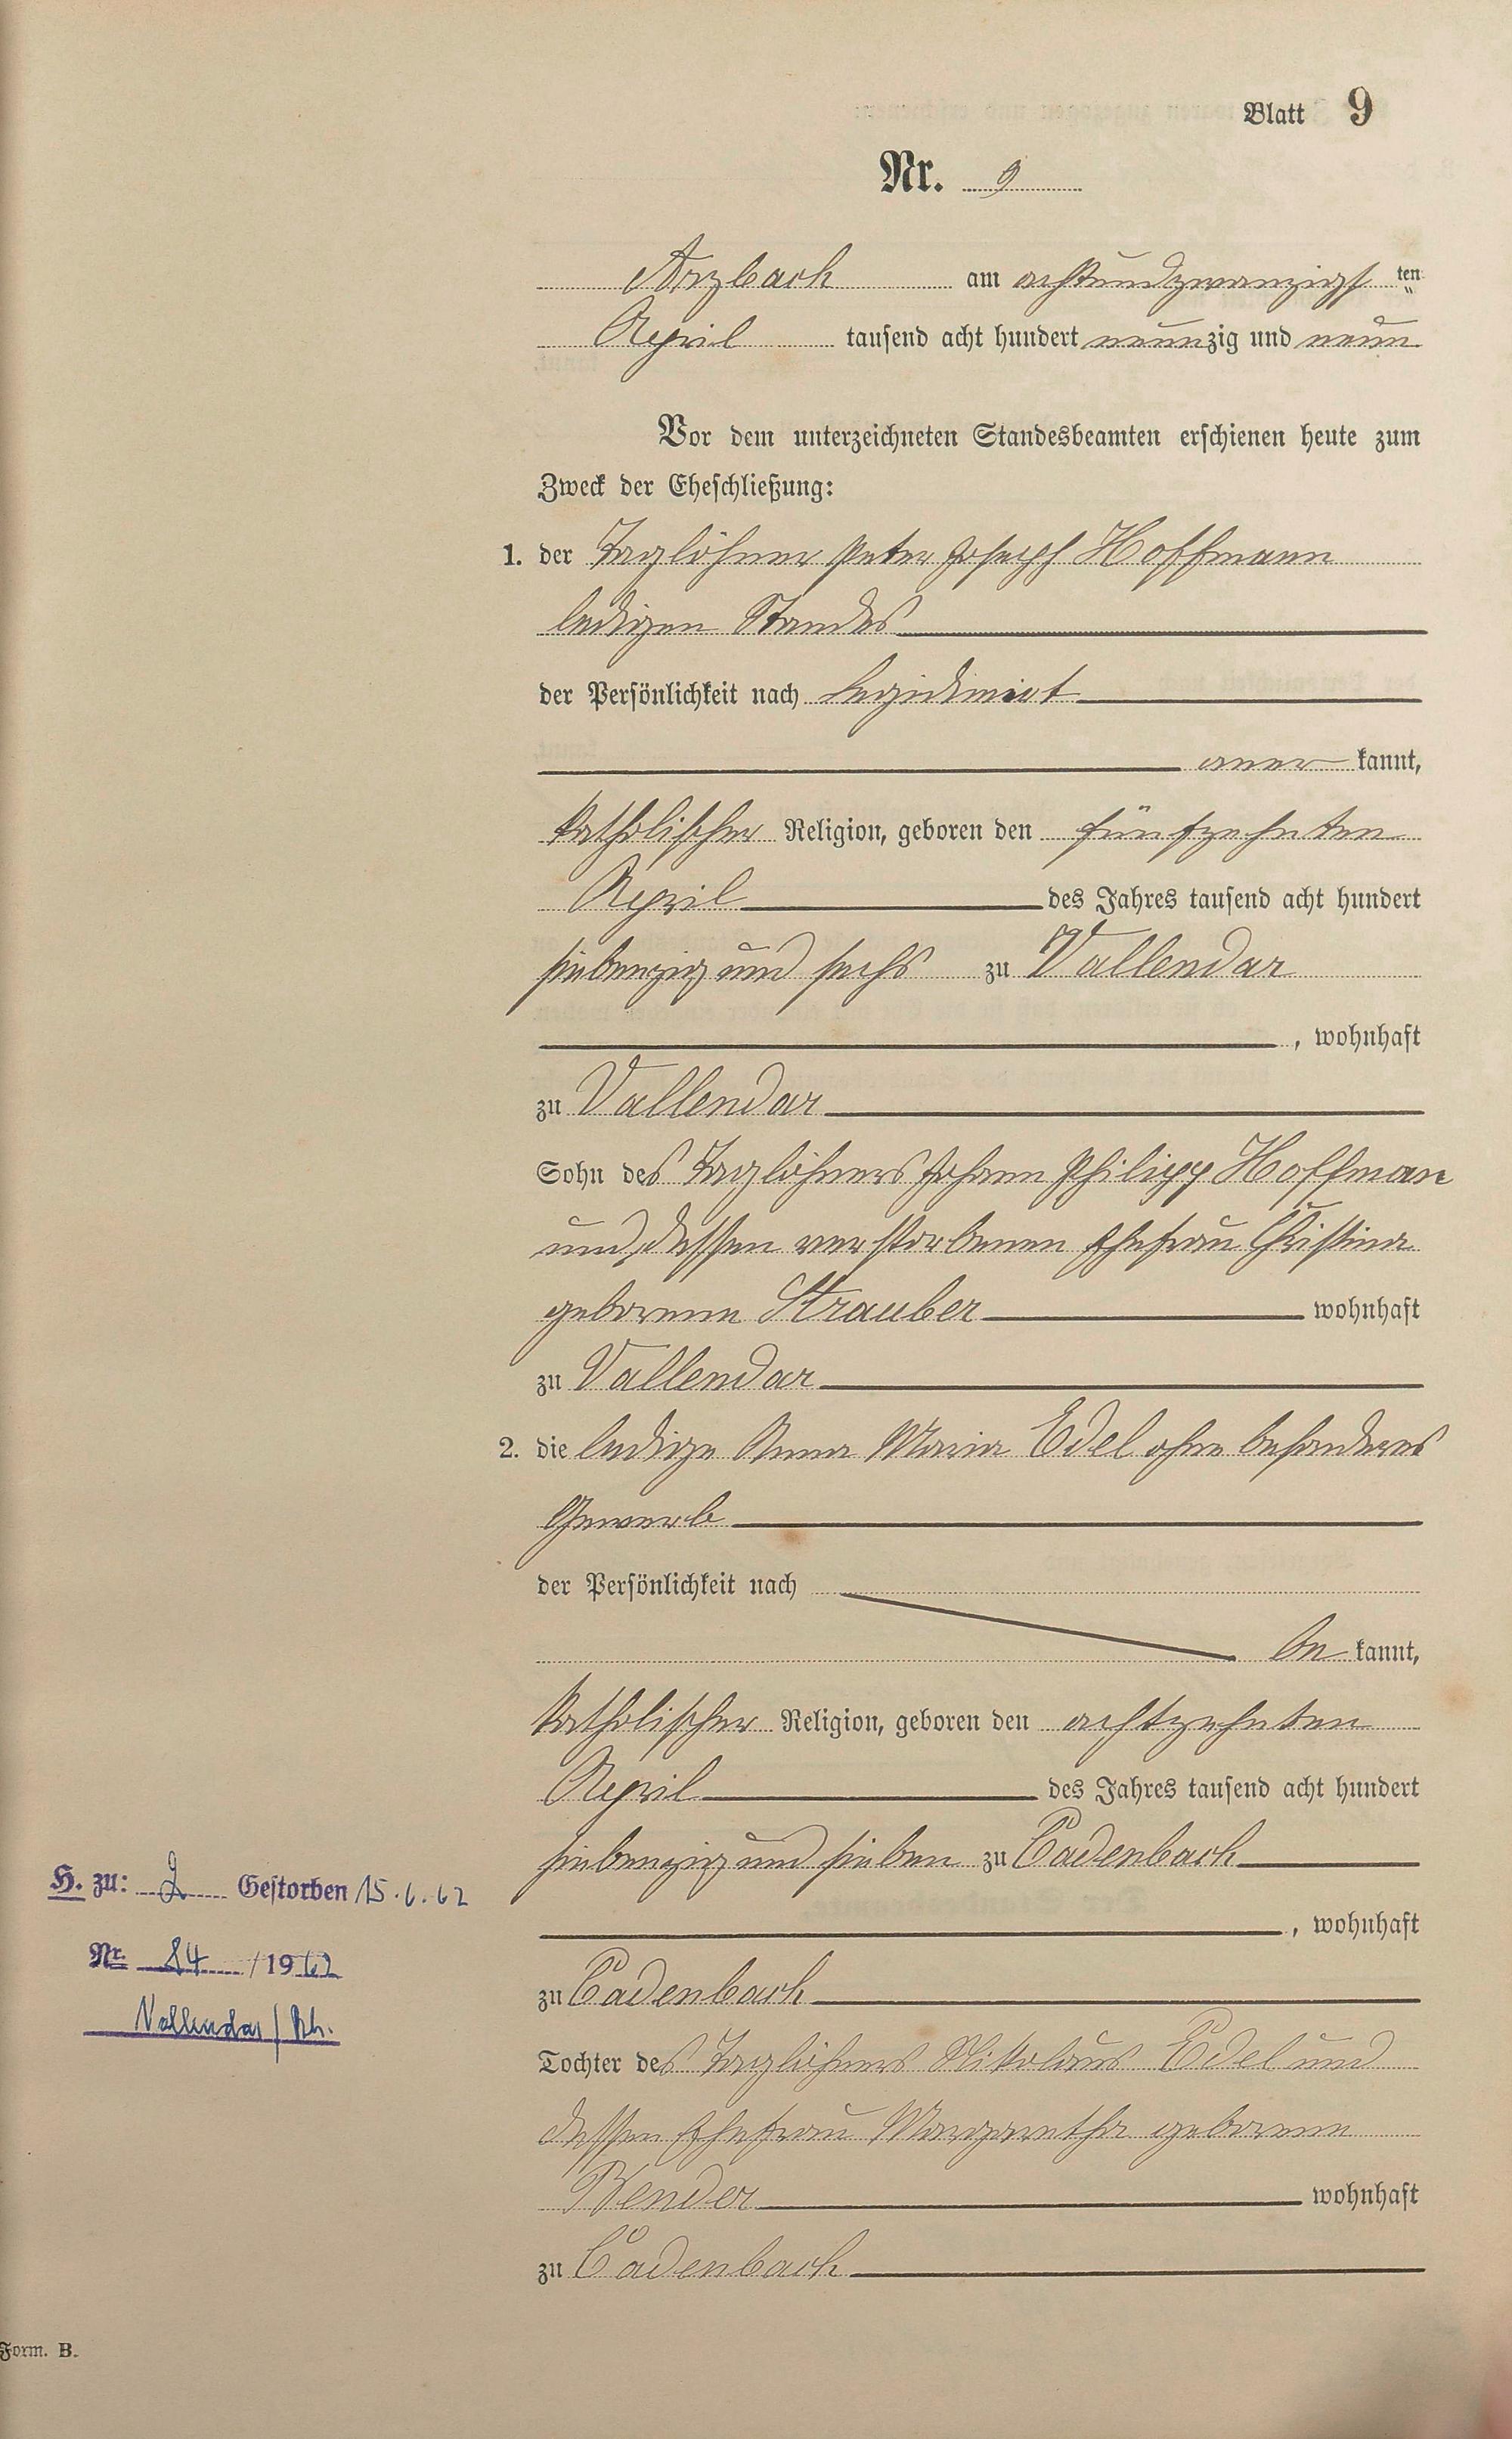 Blatt 9
Nr. 9
Arzbach am achtundzwanzigsten
April tausend acht hundert neunzig und neun
Vor dem unterzeichneten Standesbeamten erschienen heute zum
Zweck der Eheschließung:
1. der Taglöhner Peter Joseph Hoffmann
ledigen Standes
der Persönlichkeit nach legidimirt
aner kannt,
katholischer Religion, geboren den fünfzehnten
April des Jahres tausend acht hundert
siebenzig und sechs zu Vallendar
, wohnhaft
zu Vallendar
Sohn des Taglöhners Johann Philipp Hoffmann
und dessen verstorbenen Ehefrau Christina
geborenen Strauber wohnhaft
zu Vallendar
2. die ledige Anna Maria Edel ohne besonderes
Gewerb
der Persönlichkeit nach
be kannt,
katholischer Religion, geboren den achtzehnten
April des Jahres tausend acht hundert
siebenzig und sieben zu Cadenbach
, wohnhaft
zu Cadenbach
Tochter des Taglöhners Nikolaus Edel und
dessen Ehefrau Margaretha geborenen
Bender wohnhaft
zu Cadenbach
H. zu: 2 Gestorben 15.6.62
Nr. 84 / 1962
Vallendar / Rh.
Form. B.